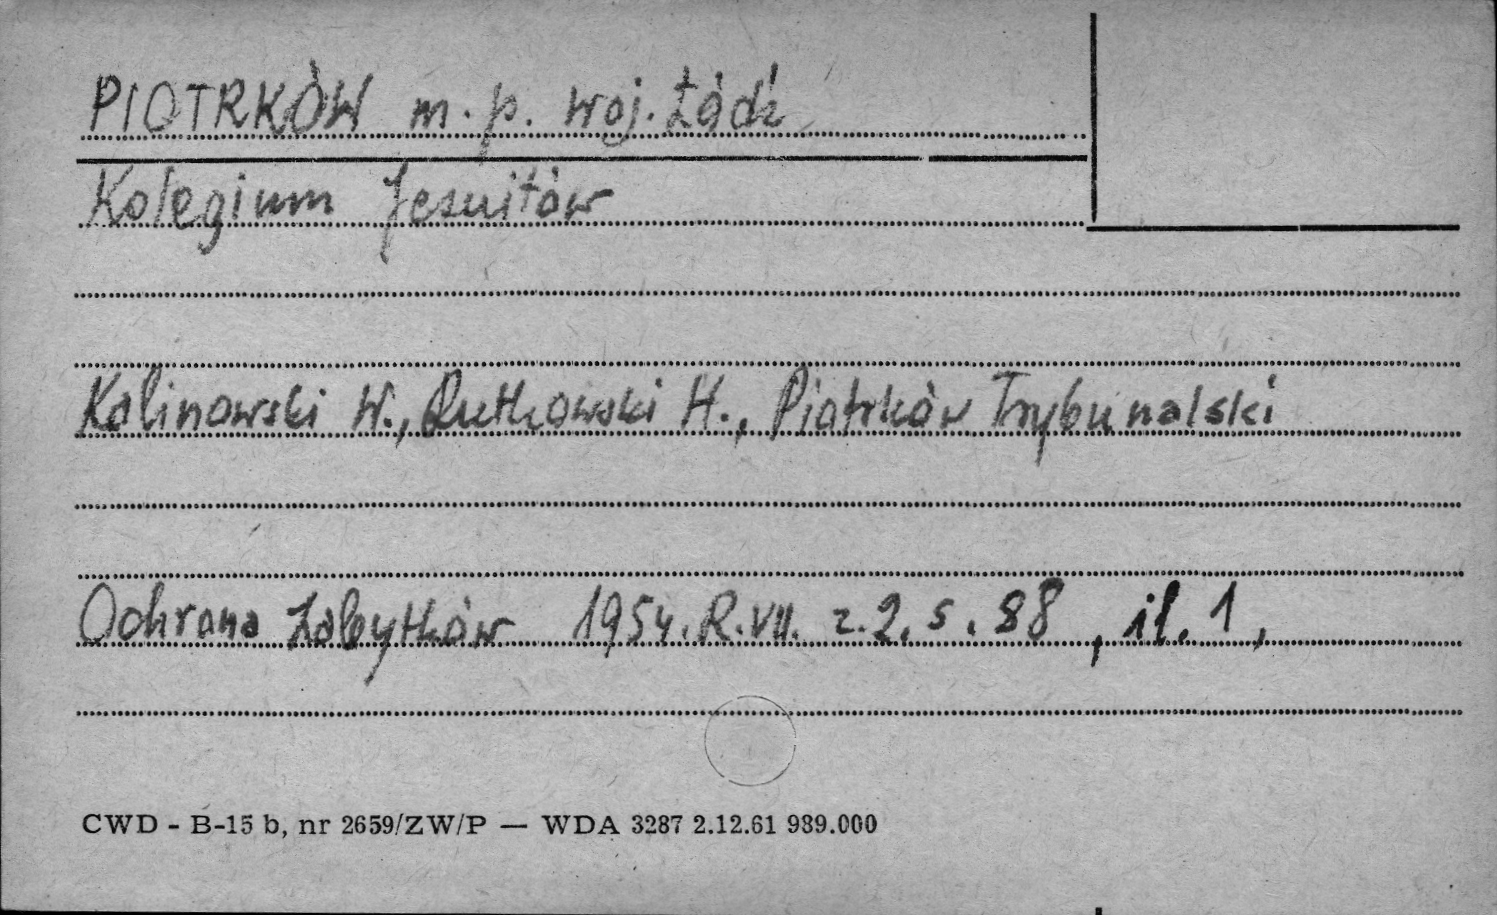 PIOTRKÓW m. p. woj. Łódź
Kolegium Jezuitów
Kalinowski W., Rutkowski H., Piotrków Trybunalski
Ochrona Zabytków 1954. R. VII. z. 2. s. 88, il. 1,
CWD - B-15 b, nr 2659/ZW/P — WDA 3287 2.12.61 989.000